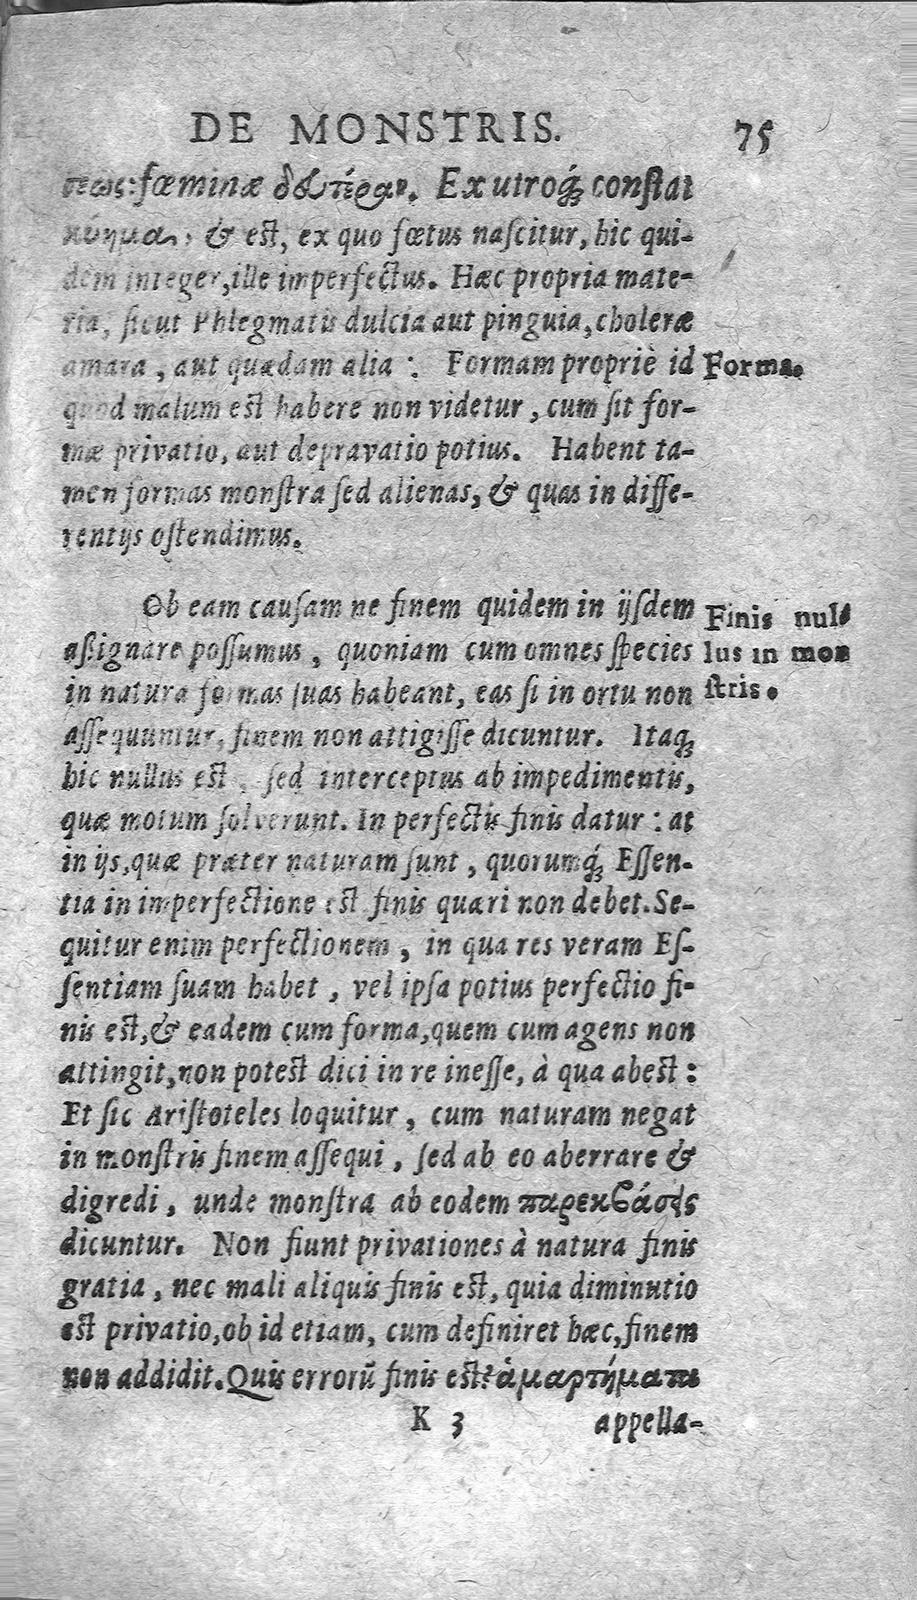 DE MONSTRIS. 75
πεως: fœminæ δευτέραν. Ex utroq́ꝫ constat
κύημα, & est, ex quo fœtus nascitur, hic qui-
dem integer, ille imperfectus. Hæc propria mate-
ria, sicut Phlegmatis dulcia aut pinguia, choleræ
amara, aut quædam alia: Formam propriè id
Forma.
quod malum est habere non videtur, cum sit for-
mæ privatio, aut depravatio potius. Habent ta-
men formas monstra sed alienas, & quas in diffe-
rentijs ostendimus.
Ob eam causam ne finem quidem in ijsdem
assignare possumus, quoniam cum omnes species
in natura formas suas habeant, eas si in ortu non
assequuntur, finem non attigisse dicuntur. Itaqꝫ
Finis nul-
lus in mon
stris.
hic nullus est, sed interceptus ab impedimentis,
quæ motum solverunt. In perfectis finis datur: at
in ijs, quæ præter naturam sunt, quorumq́ꝫ Essen-
tia in imperfectione est finis quæri non debet. Se-
quitur enim perfectionem, in qua res veram Es-
sentiam suam habet, vel ipsa potius perfectio fi-
nis est, & eadem cum forma, quem cum agens non
attingit, non potest dici in re inesse, à qua abest:
Et sic Aristoteles loquitur, cum naturam negat
in monstris finem assequi, sed ab eo aberrare &
digredi, unde monstra ab eodem παρεκβάσεις
dicuntur. Non fiunt privationes à natura finis
gratia, nec mali aliquis finis est, quia diminutio
est privatio, ob id etiam, cum definiret hæc, finem
non addidit. Quis errorū finis est? ἁμαρτήματα
K 3 appella-